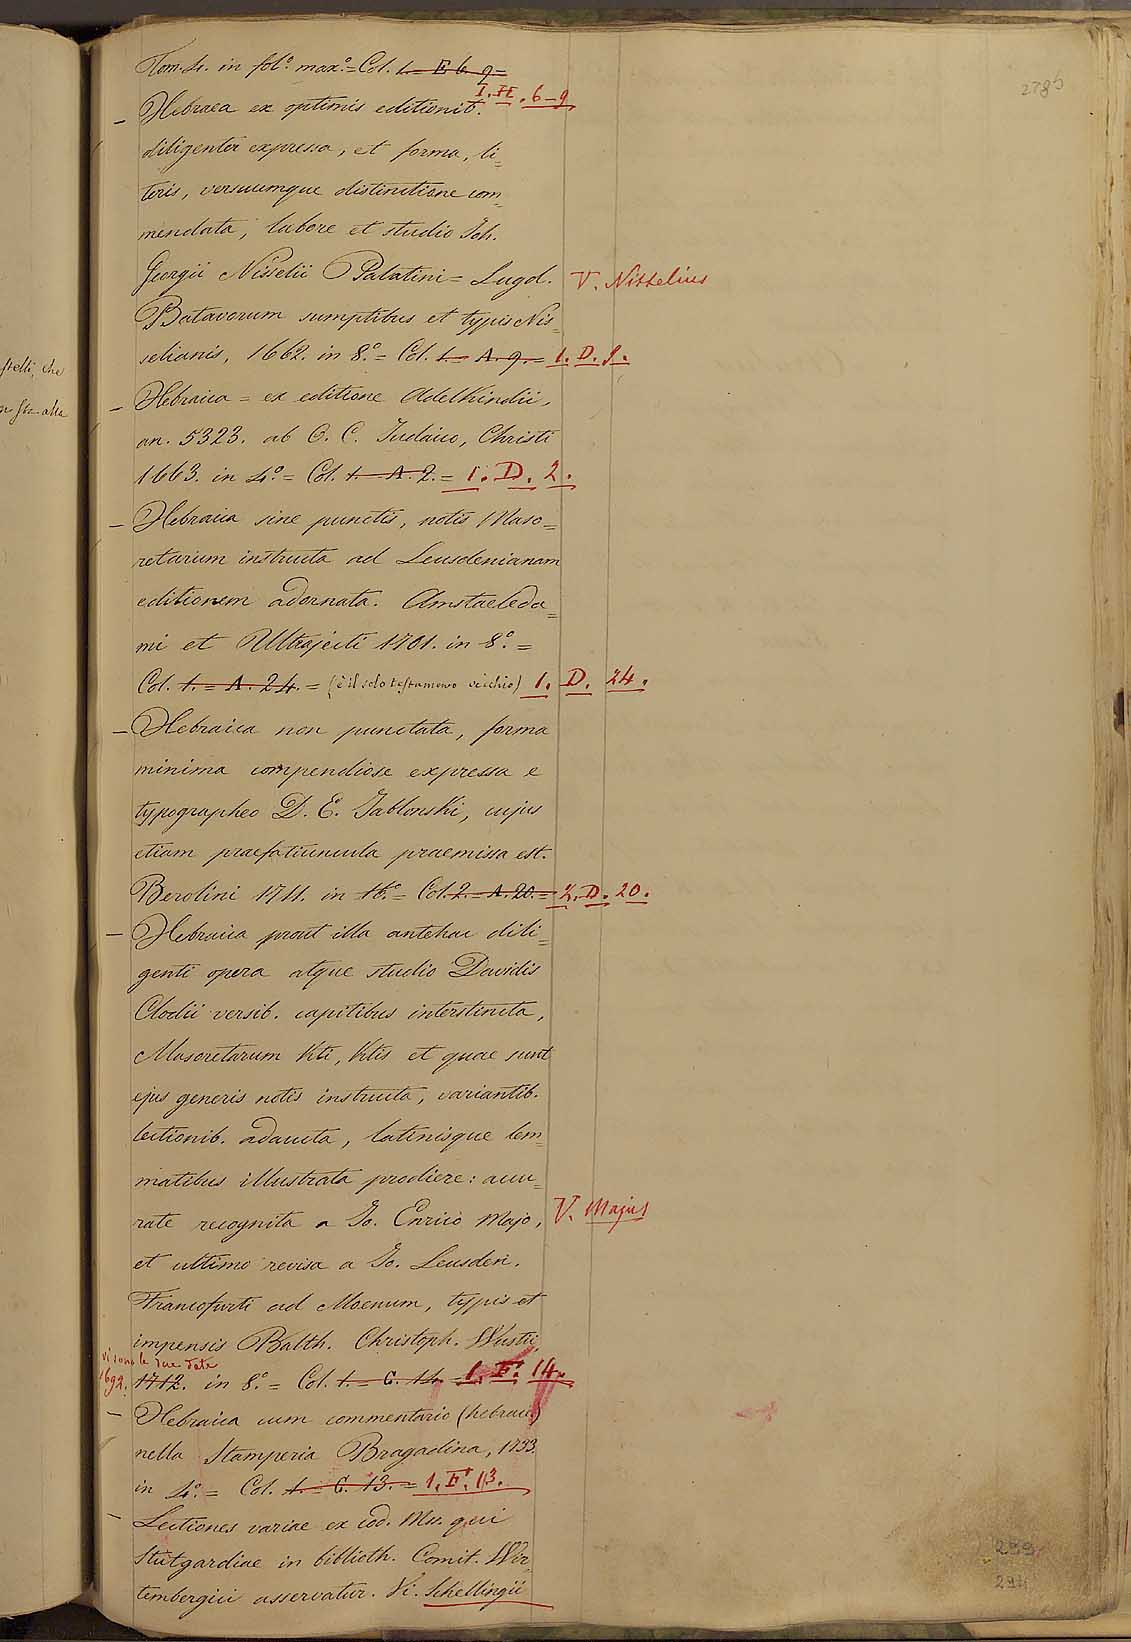 2785
Tom. 4. in fol.º max.º = Col. 1. = E 6. 9 =
I. H. 6-9
– Hebraea ex optimis editionib.
diligenter expressa, et forma, li=
teris, versuumque distinctione com=
mendata, labore et studio Joh.
Georgii Nisselii Palatini = Lugd. V. Nisselius
Batavorum sumptibus et typis Nis=
selianis, 1662. in 8.º = Col. 1. = A. 9. = 1. D. 9.
– Hebraica = ex editione Adelkindii,
an. 5323. ab O. C. Judaico, Christi
1663. in 4.º = Col. 1. A. 2. = 1. D. 2.
– Hebraica sine punctis, notis Maso=
retarum instructa ad Leusdenianam
editionem adornata. Amstaeleda=
mi et Ultrajecti 1701. in 8.º =
Col. 1. = A. 24. = (è il solo testamento vecchio) 1. D. 24.
– Hebraica non punctata, forma
minima compendiose expressa e
typographeo D. E. Jablonski, cujus
etiam praefatiuncula praemissa est.
Berolini 1711. in 16.º = Col. 2. = A. 20. = 2. D. 20.
– Hebraica prout illa antehac dili=
genti opera atque studio Davidis
Clodii versib. capitibus interstincta,
Masoretarum Kti, Ktis et quae sunt
ejus generis notis instructa, variantib.
lectionib. adaucta, latinisque lem=
matibus illustrata prodiere: accu=
rate recognita a Jo. Enrico Majo, V. Majus
et ultimo revisa a Jo. Leusden.
Francofurti ad Moenum, typis et
impensis Balth. Christoph. Wustii,
vi sono le due date
1692. 1712. in 8.º = Col. 1. = C. 14. = 1. E. 14.
– Hebraica cum commentario (hebraice)
nella Stamperia Bragadina, 1733.
in 4.º = Col. 1. = C. 13. = 1. E. 13.
– Lectiones variae ex cod. Ms. qui
Stutgardiae in biblioth. Comit. Wir=
tembergici asservatur. Vi. Schellingii
299
294